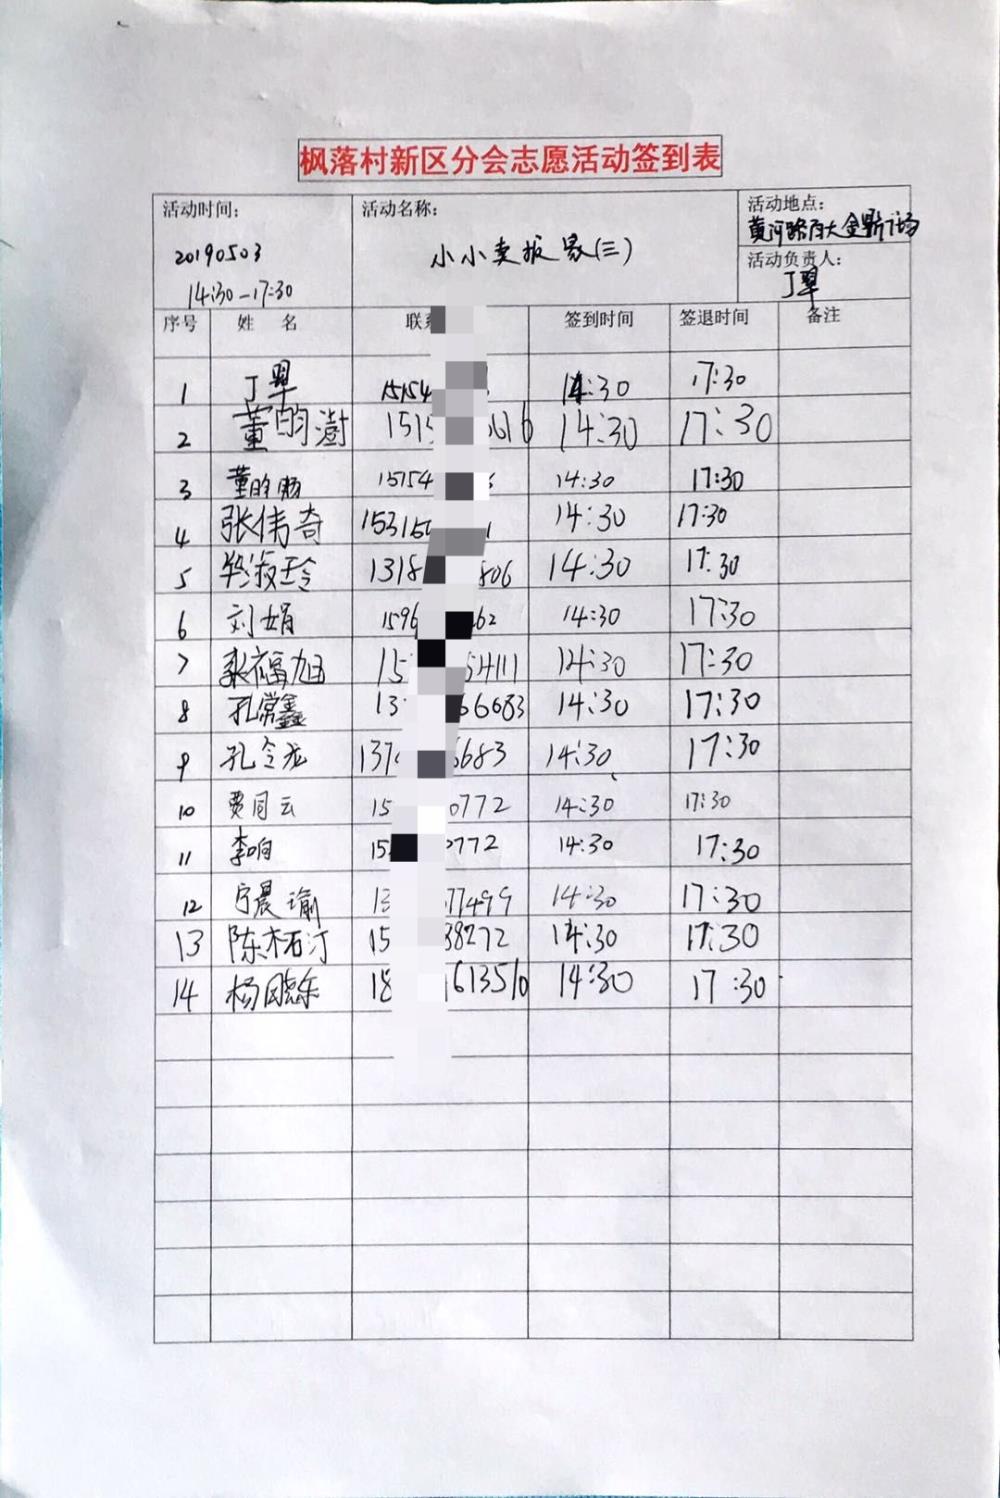 枫落村新区分会志愿活动签到表
活动时间:
20190503
14:30-17:30
活动名称:
小小卖报家(三)
活动地点:
黄河路百大金鼎广场
活动负责人:
丁翠
序号 姓 名 联系 签到时间 签退时间 备注
1 丁翠 15154 14:30 17:30
2 董昀澍 151 616 14:30 17:30
3 董昀 15154 14:30 17:30
4 张伟奇 15315 1 14:30 17:30
5 淑玲 1318 806 14:30 17:30
6 刘娟 1596 62 14:30 17:30
7 福旭 15 54111 14:30 17:30
8 孔常鑫 13 66683 14:30 17:30
9 孔令龙 137 6683 14:30 17:30
10 贾同云 15 0772 14:30 17:30
11 李响 15 0772 14:30 17:30
12 宁晨瑜 13 77499 14:30 17:30
13 陈柘汀 15 38272 14:30 17:30
14 杨 18 613510 14:30 17:30